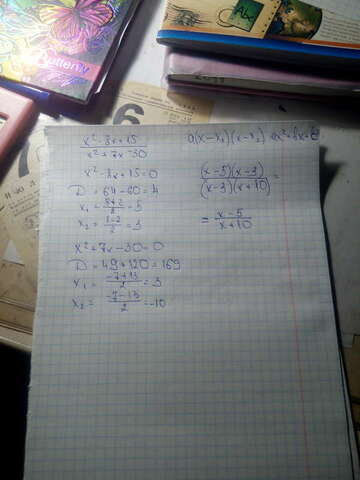 x²-8x+15
x²+7x-30
x²-8x+15=0
D=64-60=4
x₁=(8+2)/2=5
x₂=(8-2)/2=3
x²+7x-30=0
D=49+120=169
x₁=(-7+13)/2=3
x₂=(-7-13)/2=-10
a(x-x₁)(x-x₂)
(x-5)(x-3)
(x-3)(x+10) =
= (x-5)/(x+10)